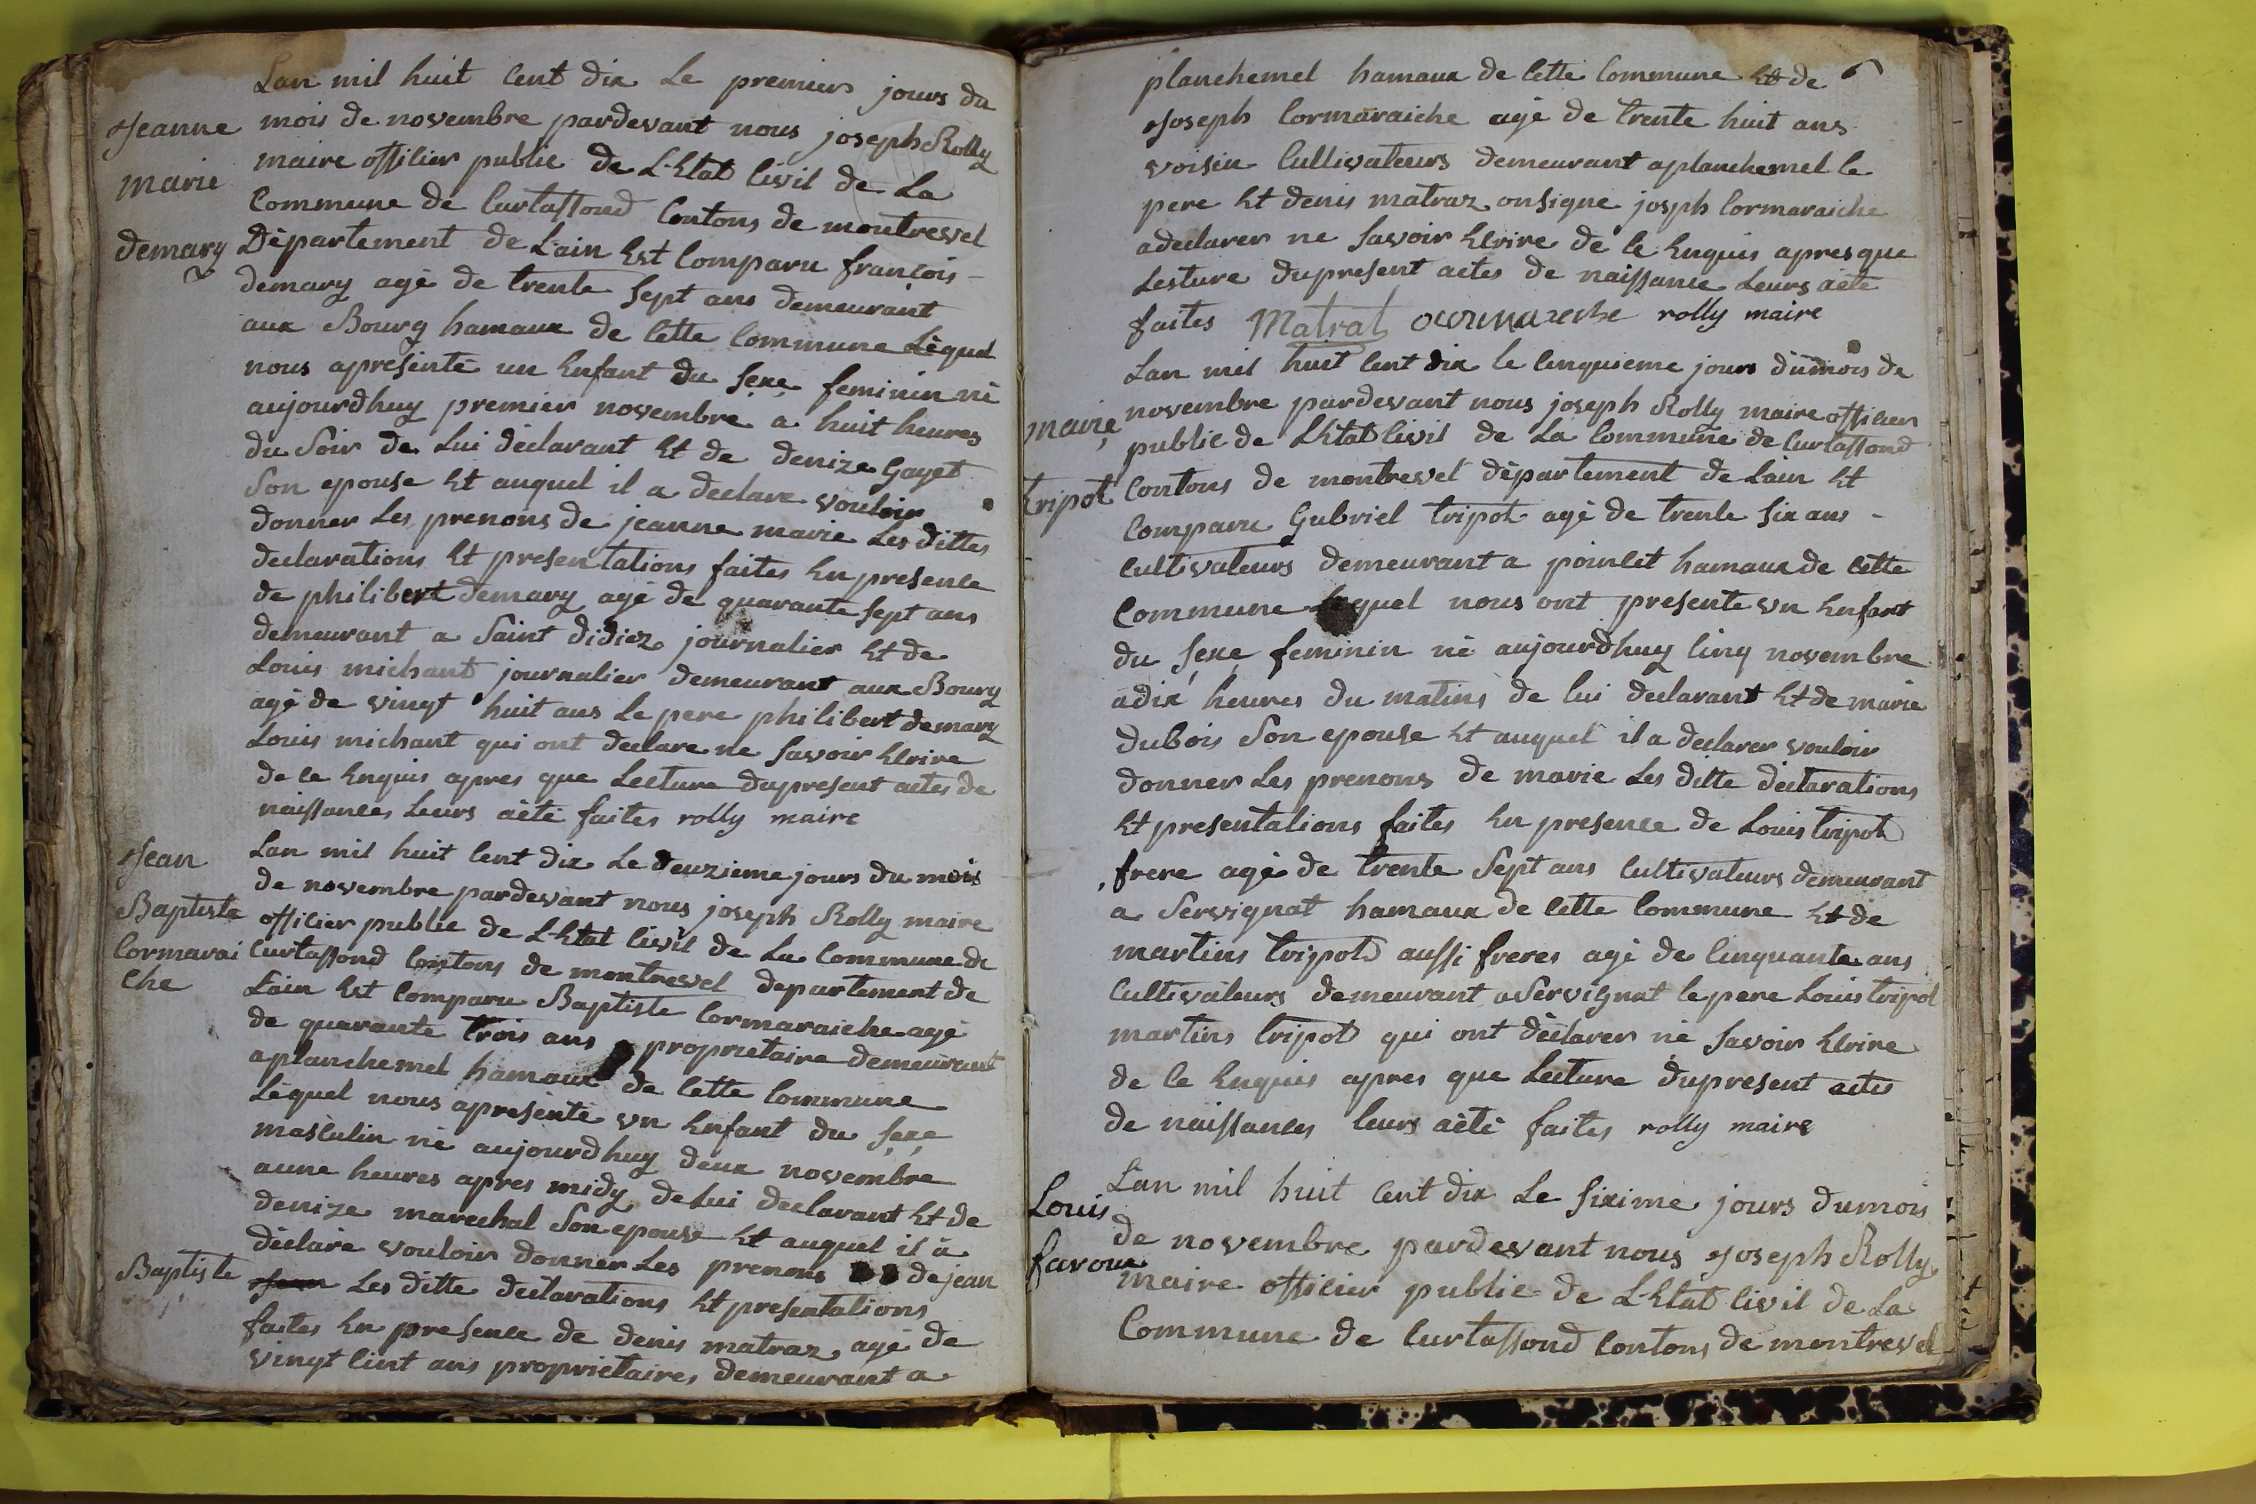 Lan mil huit Cent dix Le premiers jours du
Jeanne
mois de novembre pardevant nous joseph Rolly
marie
maire offisier public de L'Etat Civil de La
Commune de Curtassond Contons de montrevel
demary
Département de L'ain Est Comparu francois -
demary agé de trente sept ans demeurant
aux Bourg hamaux de Cette Commune Léquel
nous apresenté un Enfant du sexe feminin né
aujourdhuy premier novembre a huit heures
du Soir de Lui déclarant Et de denize Gayet
Son epouse Et auquel il a declare vouloir
donner Les prenons de jeanne marie Les dittes
declarations Et presentations faites En presence
de philibert demary agé de quarante sept ans
demeurant a Saint didiez journalier Et de
Louis michant journalier demeurant aux Bourg
agé de vingt huit ans Le pere philibert demary
Louis michant qui ont declare ne Savoir Ecrire
de ce Enquis apres que Lecture dupresent actes de
naissances Leurs aété faites rolly maire
Jean
Lan mil huit Cent dix Le deuzieme jours du mois
Baptiste
de novembre pardevant nous joseph Rolly maire
officier public de L'Etat Civil de La Commune de
Cormarai
Curtassond Contons de montrevel departement de
che
Lain Est Comparu Baptiste Cormaraiche agé
de quarante trois ans proprietaire demeurant
aplanchemel hamaux de Cette Commune
Léquel nous apresénté un Enfant du sexe
masculin né aujourdhuy deux novembre
aune heures apres midy de Lui declarant Et de
denize marechal Son epouse Et auquel il à
déclaré vouloir donner Les prenons de jean
Baptiste
Jean Les ditte declarations Et presentations
faites En presence de denis matraz agé de
vingt Cint ans proprietaires demeurant a
planchemel hamaux de Cette Commune Et de 6
Joseph Cormaraiche agé de trente huit ans
voisin Cultivateurs demeurant aplanchemel le
pere Et denis matraz onsigne josph Cormaraiche
adeclarer ne Savoir Ecrire de ce Enquis apresque
Lesture dupresent actes de naissance Leurs aété
faites Matrat rolly maire
Lan mil huit Cent dix le Cinquieme jours dumois de
marie
novembre pardevant nous joseph Rolly maire officier
public de L'Etat Civil de La Commune de Curtassond
tripot
Contons de montrevel département de Lain Et
Comparu Gabriel tripot agé de trente six ans -
Cultivateurs demeurant a poincet hamaux de Cette
Commune Lequel nous ont presente un Enfant
du sexe feminin né aujourdhuy Cinq novembre
adix heures du matins de lui declarant Et de marie
dubois Son epouse Et auquel il a declarer vouloir
donner Les prenons de marie Les ditte déclarations
Et presentations faites En presence de Louis tripot
frere agé de trente Sept ans Cultivateurs demeurant
a Servignat hamaux de Cette Commune Et de
martins tripot aussi freres agé de Cinquante ans
Cultivateurs demeurant a Servignat le pere Louis tripot
martins tripot qui ont déclarer né Savoir Ecrire
de ce Enquis apres que Lecture dupresent actes
de naissances leurs aété faites rolly maire
L'an mil huit Cent dix Le sixime jours dumois
Louis
de novembre pardevant nous Joseph Rolly
favoux
maire officier public de L'Etat Civil de La
Commune de Curtassond Contons de montrevel